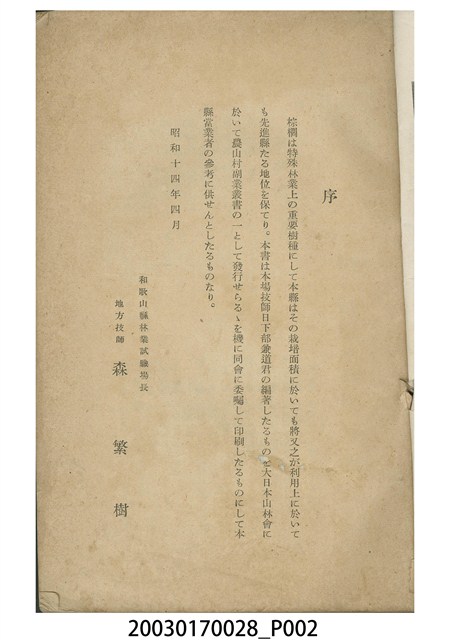 序
棕櫚は特殊林業上の重要樹種にして本縣はその栽培面積に於いても將又之が利用上に於いて
も先進縣たる地位を保てり。本書は本場技師日下部兼道君の編著したるものを大日本山林會に
於いて農山村副業叢書の一として發行せらるゝを機に同會に委囑して印刷したるものにして本
縣當業者の參考に供せんとしたるものなり。
昭和十四年四月
和歌山縣林業試驗場長
地方技師 森繁樹
20030170028_P002